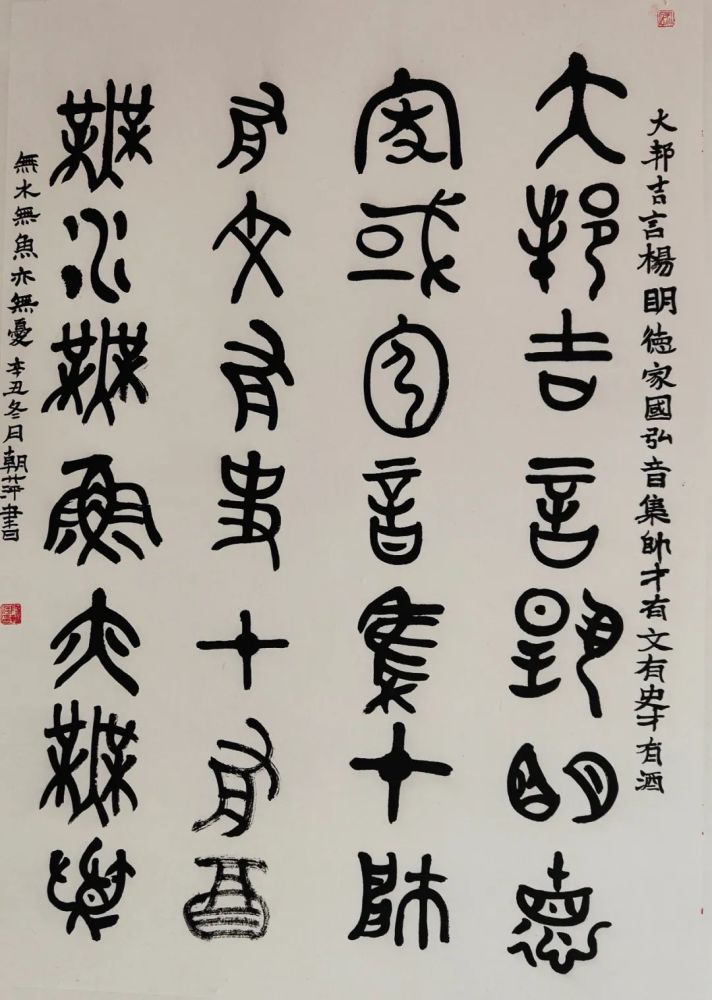 大邦吉言楊明德家國弘音集帥才有文有史才有酒
大邦吉言揚明德
家或弘音集才帥
有文有史才有酉
無水無魚亦無憂
無水無魚亦無憂 辛丑冬月朝萍書